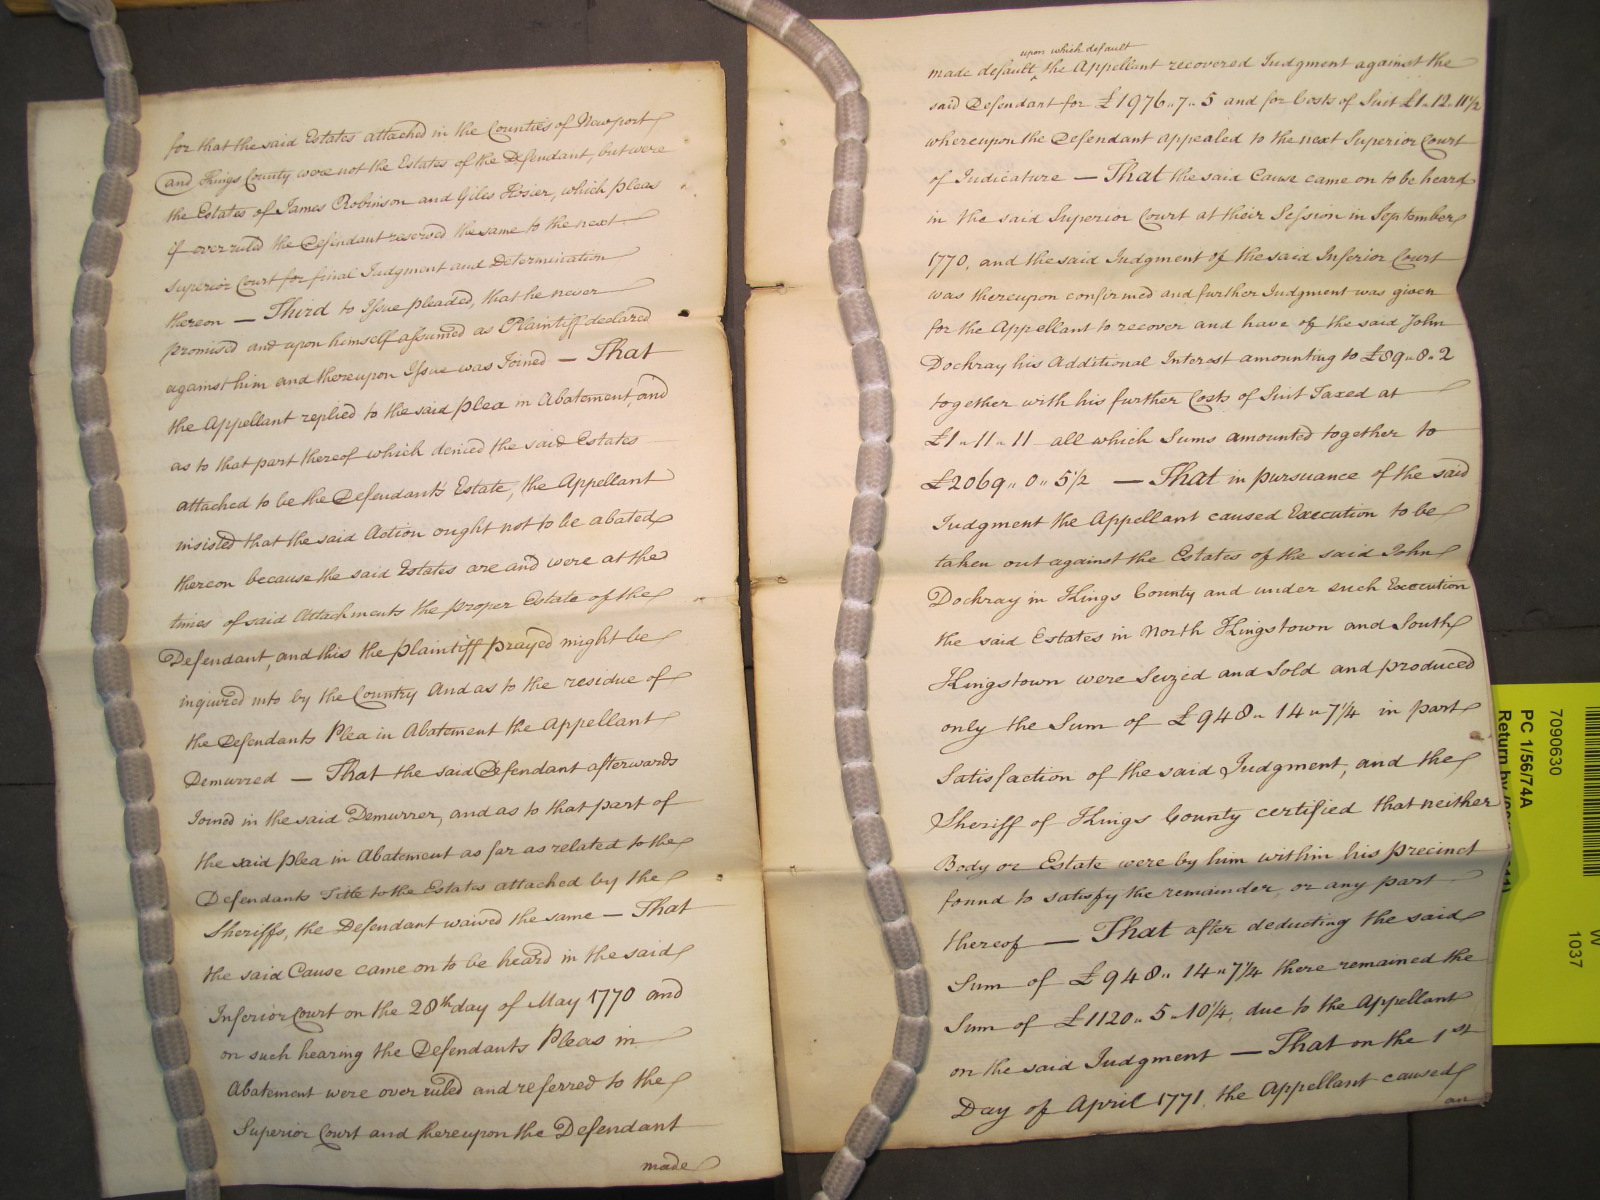 for that the said Estates attached in the Counties of Newport
and Kings County were not the Estates of the Defendant, but were
the Estates of James Robinson and Giles Hosier, which pleas
if over ruled the Defendant reserved the same to the next
Superior Court for final Judgment and Determination
thereon — Third to Issue pleaded, that he never
promised and upon himself assumed as Plaintiff declared
against him and thereupon Issue was Joined — That
the Appellant replied to the said plea in Abatement, and
as to that part thereof which denied the said Estates
attached to be the Defendants Estate, the Appellant
insisted that the said Action ought not to be abated
thereon because the said Estates are and were at the
times of said Attachments the proper Estate of the
Defendant, and this the plaintiff prayed might be
inquired into by the Country And as to the residue of
the Defendants Plea in Abatement the Appellant
Demurred — That the said Defendant afterwards
Joined in the said Demurrer, and as to that part of
the said plea in Abatement as far as related to the
Defendants Title to the Estates attached by the
Sheriffs, the Defendant waived the same — That
the said Cause came on to be heard in the said
Inferior Court on the 28th day of May 1770 and
on such hearing the Defendants Pleas in
Abatement were over ruled and referred to the
Superior Court and thereupon the Defendant
made
upon which default
made default, the Appellant recovered Judgment against the
said Defendant for £1976..7..5 and for Costs of Suit £1..12..11½
whereupon the Defendant appealed to the next Superior Court
of Judicature — That the said Cause came on to be heard
in the said Superior Court at their Session in September
1770, and the said Judgment of the said Inferior Court
was thereupon confirmed and further Judgment was given
for the Appellant to recover and have of the said John
Dockray his Additional Interest amounting to £89..8..2
together with his further Costs of Suit Taxed at
£1..11..11 all which Sums amounted together to
£2069..0..5½ — That in pursuance of the said
Judgment the Appellant caused Execution to be
taken out against the Estates of the said John
Dockray in Kings County and under such Execution
the said Estates in North Kingstown and South
Kingstown were Seized and Sold and produced
only the Sum of £948..14..7¼ in part
Satisfaction of the said Judgment, and the
Sheriff of Kings County certified that neither
Body or Estate were by him within his precinct
found to satisfy the remainder, or any part
thereof — That after deducting the said
Sum of £948..14..7¼ there remained the
Sum of £1120..5..10¼, due to the Appellant
on the said Judgment — That on the 1st
Day of April 1771, the Appellant caused
an
7090630
PC 1/56/74A
Return by
W
1037